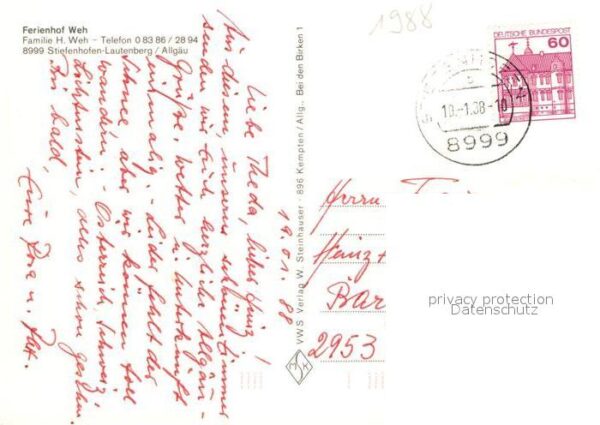 Ferienhof Weh
Familie H. Weh - Telefon 0 83 86 / 28 94
8999 Stiefenhofen-Lautenberg / Allgäu
1988
DEUTSCHE BUNDESPOST
60
10.-1.88-10
8999
19.01.88
Liebe Theda, lieber Heinz!
Aus diesem, unserem
senden wir Euch herzliche Allgäu-
Grüße. Wetter u. Unterkunft
einmalig. Leider fehlt der
Schnee, aber wir können toll
wandern. Österreich, Schweiz
Lichtenstein, alles schon gesehen.
Bis bald,
Eure Rosa u.
VWS Verlag W. Steinhauser · 896 Kempten / Allg., Bei den Birken 1
Herrn
Heinz +
Bar
2953
privacy protection
Datenschutz